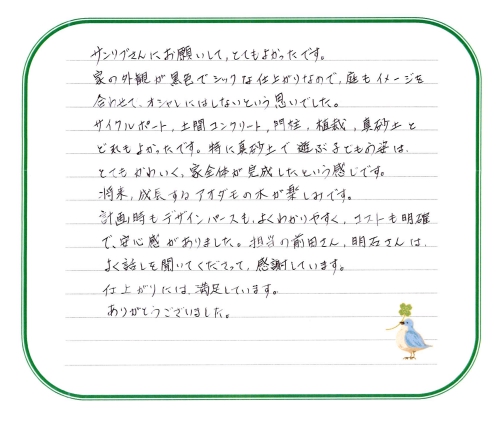 サンリブさんにお願いして,とてもよかったです。
家の外観が黒色でシックな仕上がりなので,庭もイメージを
合わせて,オシャレにはしないという思いでした。
サイクルポート,土間コンクリート,門柱,植栽,真砂土と
どれもよかったです。特に真砂土で遊ぶ子どもの姿は,
とてもかわいく,家全体が完成したという感じです。
将来,成長するアオダモの木が楽しみです。
計画時もデザインパースも,よくわかりやすく,コストも明確
で,安心感がありました。担当の前田さん,明石さんは,
よく話しを聞いてくださって,感謝しています。
仕上がりには,満足しています。
ありがとうございました。